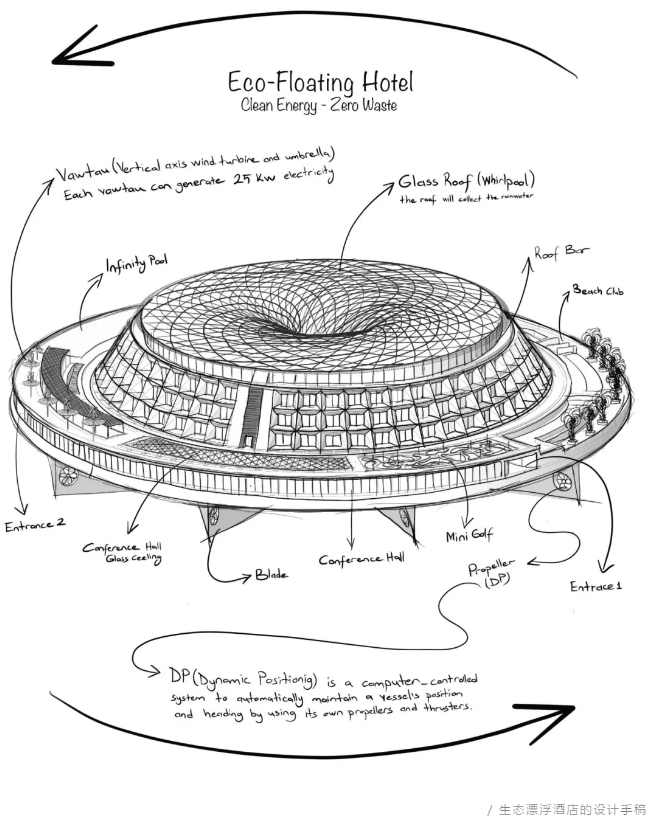 Eco-Floating Hotel
Clean Energy - Zero Waste
Vawtau (Vertical axis wind turbine and umbrella)
Each vawtau can generate 25 KW electricity
Glass Roof (Whirlpool)
the roof will collect the rainwater
Infinity Pool
Roof Bar
Beach Club
Entrance 2
Conference Hall
Glass Ceeling
Blade
Conference Hall
Mini Golf
Propeller
(DP)
Entrace 1
DP (Dynamic Positionig) is a computer-controlled
system to automatically maintain a vessel's position
and heading by using its own propellers and thrusters.
/ 生态漂浮酒店的设计手稿